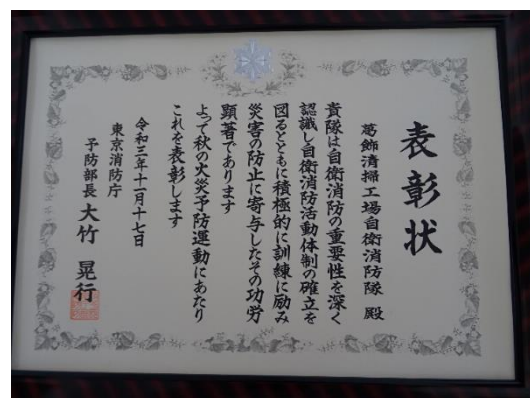 表彰状
葛飾清掃工場自衛消防隊 殿
貴隊は自衛消防の重要性を深く
認識し自衛消防活動体制の確立を
図るとともに積極的に訓練に励み
災害の防止に寄与したその功労
顕著であります
よって秋の火災予防運動にあたり
これを表彰します
令和三年十一月十七日
東京消防庁
予防部長 大竹 晃行